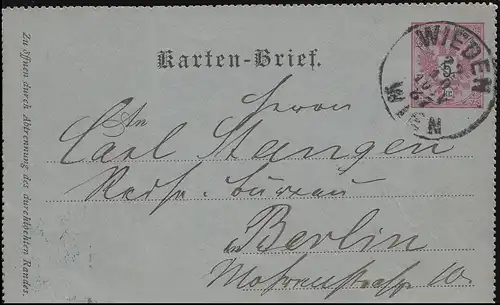 Karten-Brief.
WIEDEN
5
WIEN
Herrn
An
Carl Stangen
Reise-bureau
in Berlin
Mohrenstrasse 10.
Zu öffnen durch Abtrennung des durchlochten Randes.